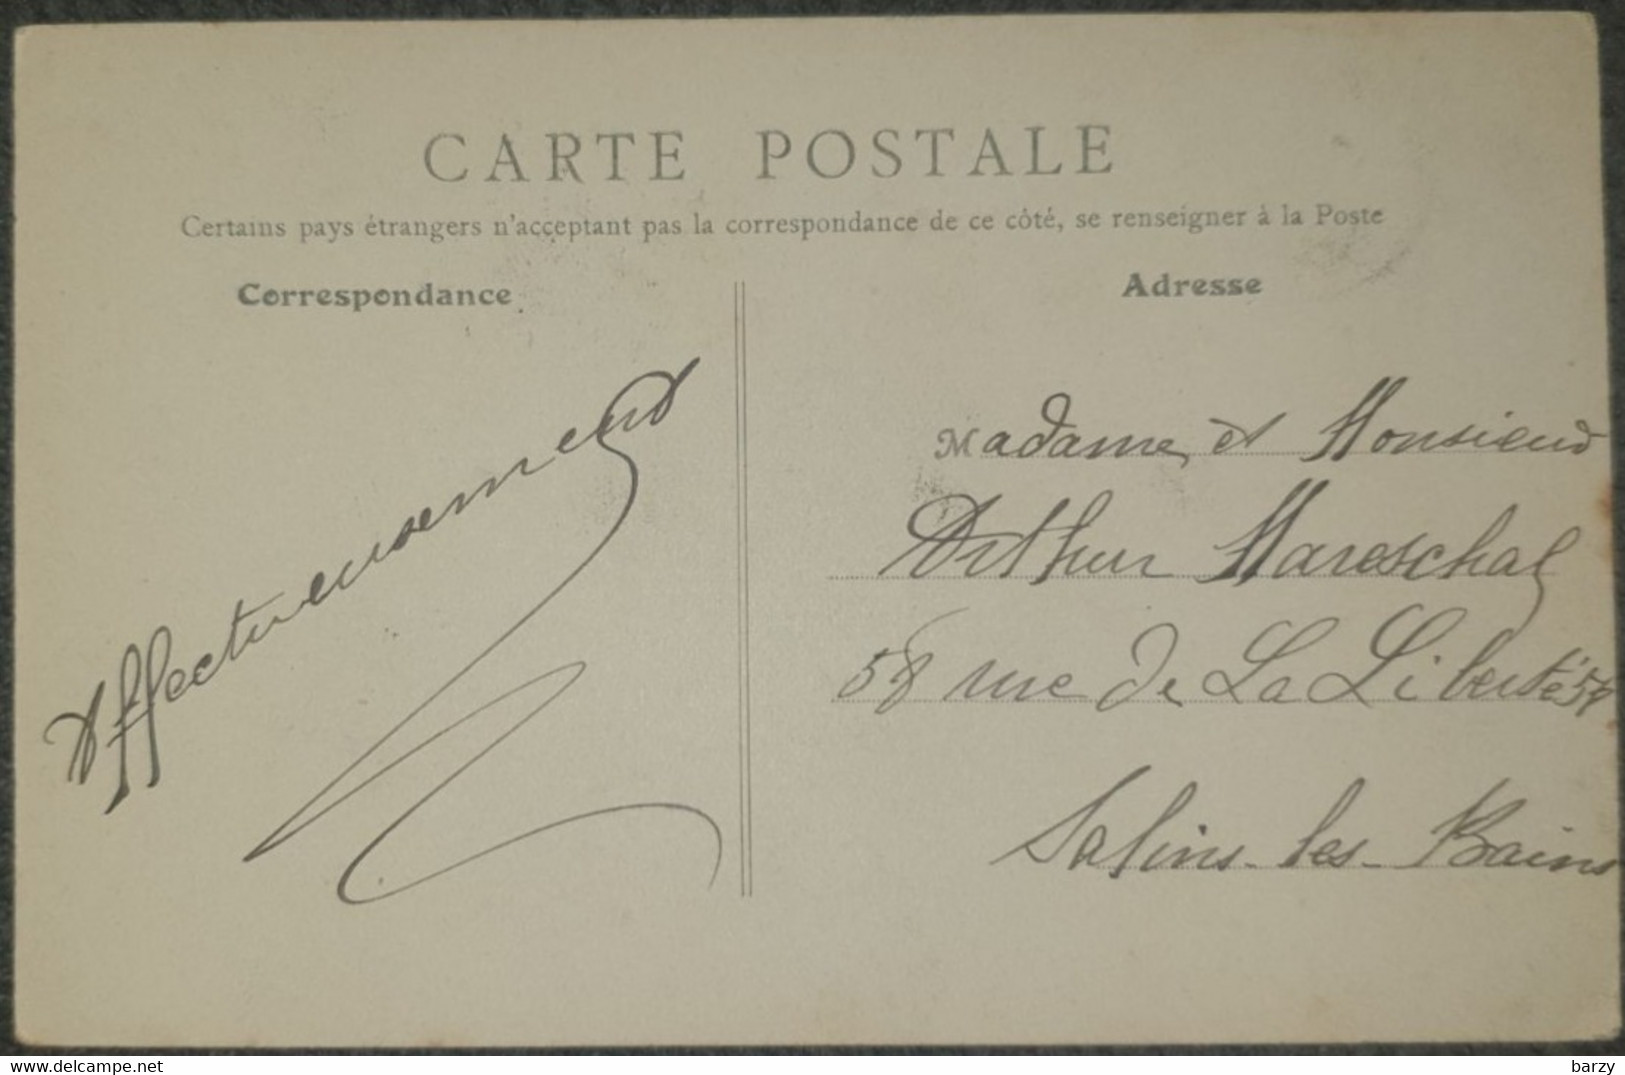 CARTE POSTALE
Certains pays étrangers n'acceptant pas la correspondance de ce côté, se renseigner à la Poste
Correspondance
Adresse
Affectueusement
Madame et Monsieur
Arthur Mareschal
58 rue de La Liberté 58
Salins-les-Bains
www.delcampe.net
barzy